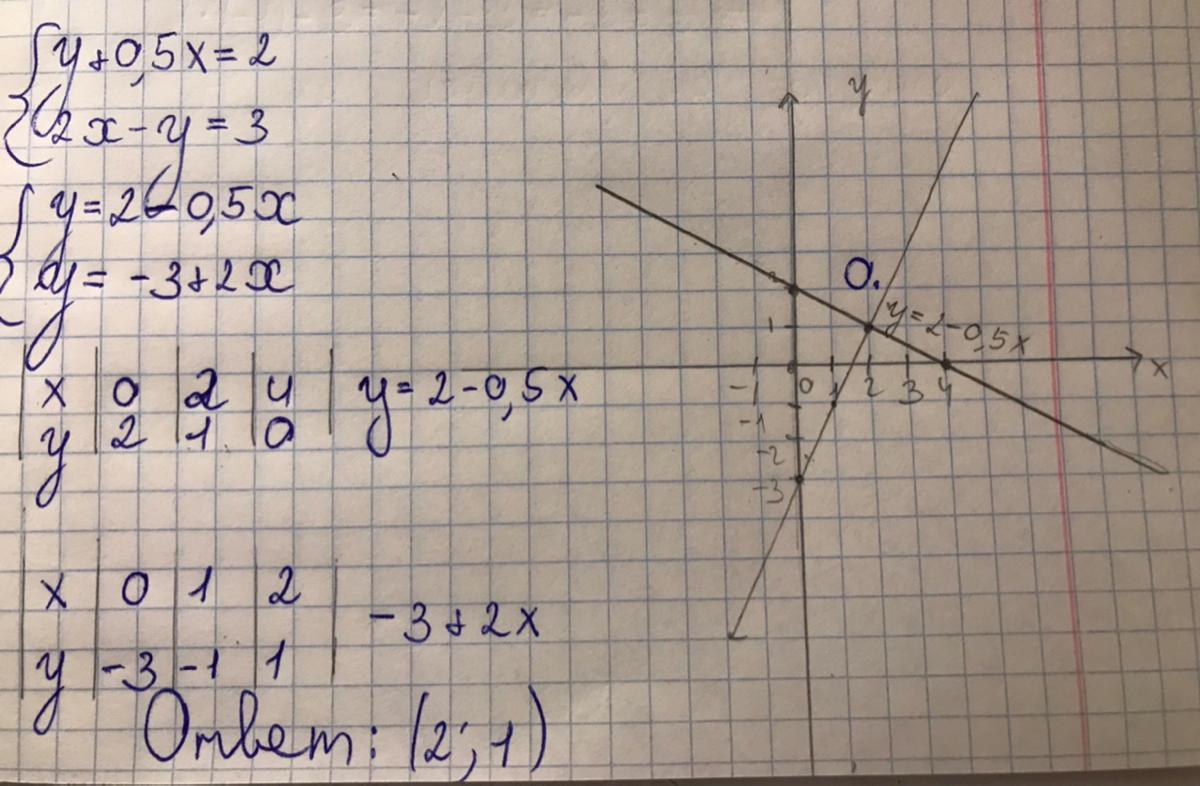 y+0,5x=2
2x-y=3
y=2-0,5x
y=-3+2x
x 0 2 4 y=2-0,5x
y 2 1 0
x 0 1 2
y -3 -1 1 -3+2x
Ответ: (2;1)
y
2
О.
1
y=2-0,5x
x
-1 0 1 2 3 4
-1
-2
-3